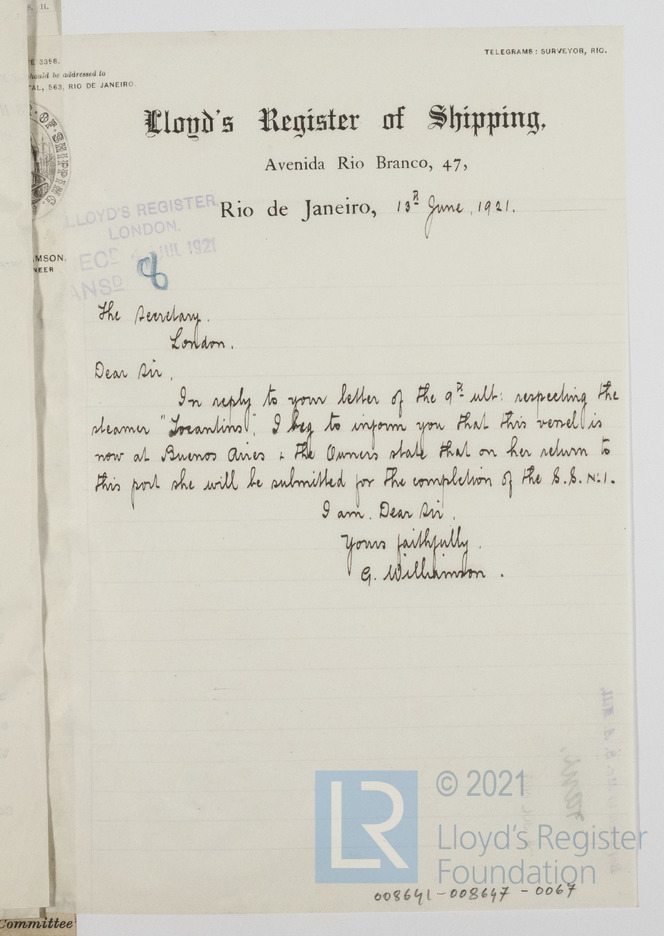 TELEGRAMS: SURVEYOR, RIO.
E 3398.
should be addressed to
AL, 563, RIO DE JANEIRO.
SHIPPING
Lloyd's Register of Shipping,
Avenida Rio Branco, 47,
Rio de Janeiro, 13th June, 1921.
LLOYD'S REGISTER,
LONDON.
RECD JUL 1921
ANSD
8
AMSON,
NEER
The Secretary.
London.
Dear Sir,
In reply to your letter of the 9th ult: respecting the
steamer "Tocantins", I beg to inform you that this vessel is
now at Buenos Aires & the Owners state that on her return to
this port she will be submitted for the completion of the S.S. No. 1.
I am. Dear Sir.
Yours faithfully.
G. Williamson.
LR © 2021
Lloyd's Register
Foundation
008641-008647-0067
Committee